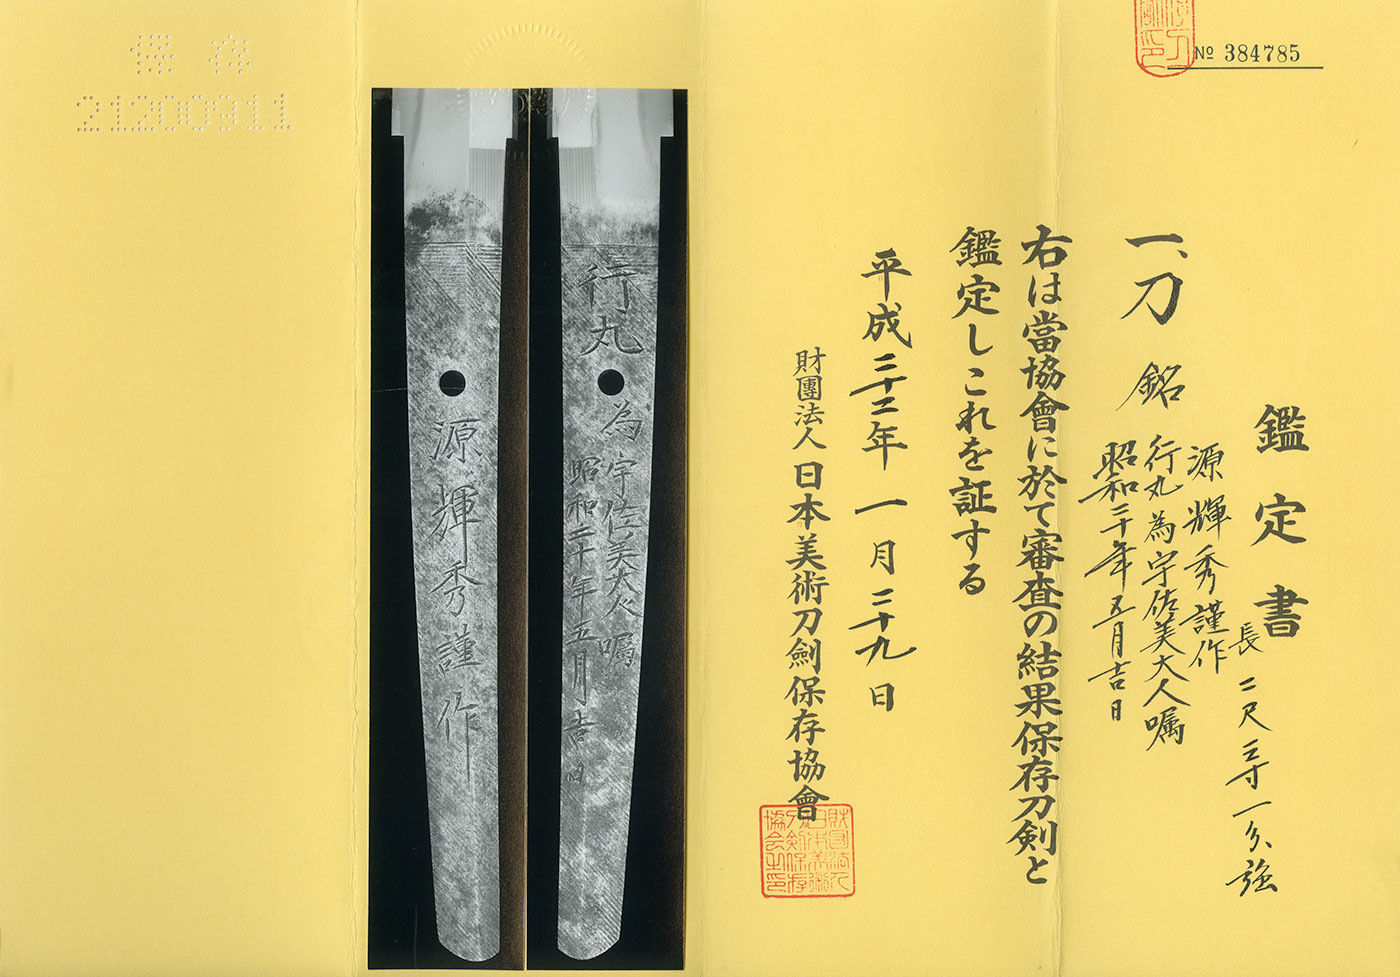 № 384785
鑑定書
一、刀 銘 源輝秀謹作
行丸為宇佐美大人嘱
昭和二十年五月吉日
長 二尺三寸一分強
右は當協會に於て審査の結果保存刀剣と
鑑定しこれを証する
平成二十二年一月二十九日
財團法人日本美術刀劍保存協會
財団法人日本美術刀剣保存協会之印
行丸為宇佐美大人嘱
昭和二十年五月吉日
源輝秀謹作
保存
21200911